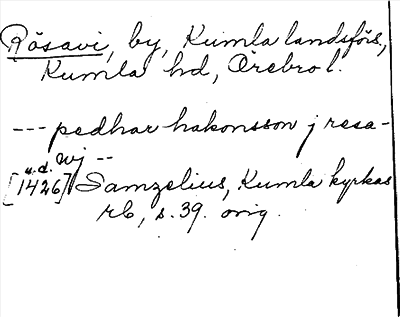 Rösavi, by, Kumla landsförs,
Kumla hd, Örebro l.
--- pedhar hakonsson j resa-
wj --
u.d.
[1426] Samzelius, Kumla kyrkas
rb, s. 39. orig.